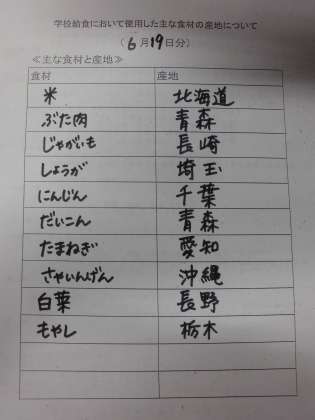 学校給食において使用した主な食材の産地について
(6月19日分)
≪主な食材と産地≫
食材 産地
米 北海道
ぶた肉 青森
じゃがいも 長崎
しょうが 埼玉
にんじん 千葉
だいこん 青森
たまねぎ 愛知
さやいんげん 沖縄
白菜 長野
もやし 栃木